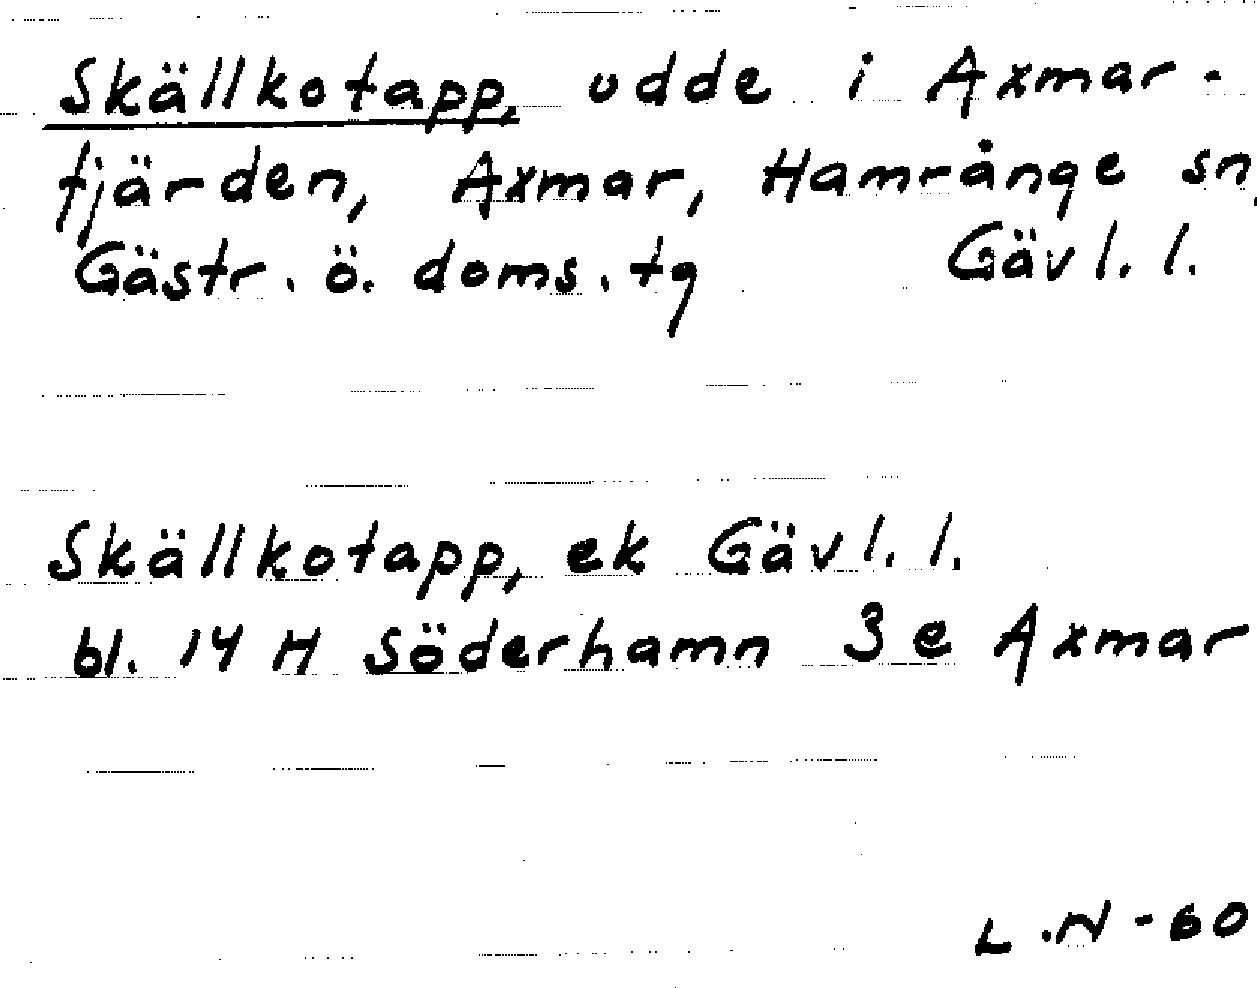 Skällkotapp, udde i Axmar-
fjärden, Axmar, Hamrånge sn,
Gästr. ö. doms. tg Gävl. l.
Skällkotapp, ek Gävl. l.
bl. 14 H Söderhamn 3 e Axmar
L.N-60